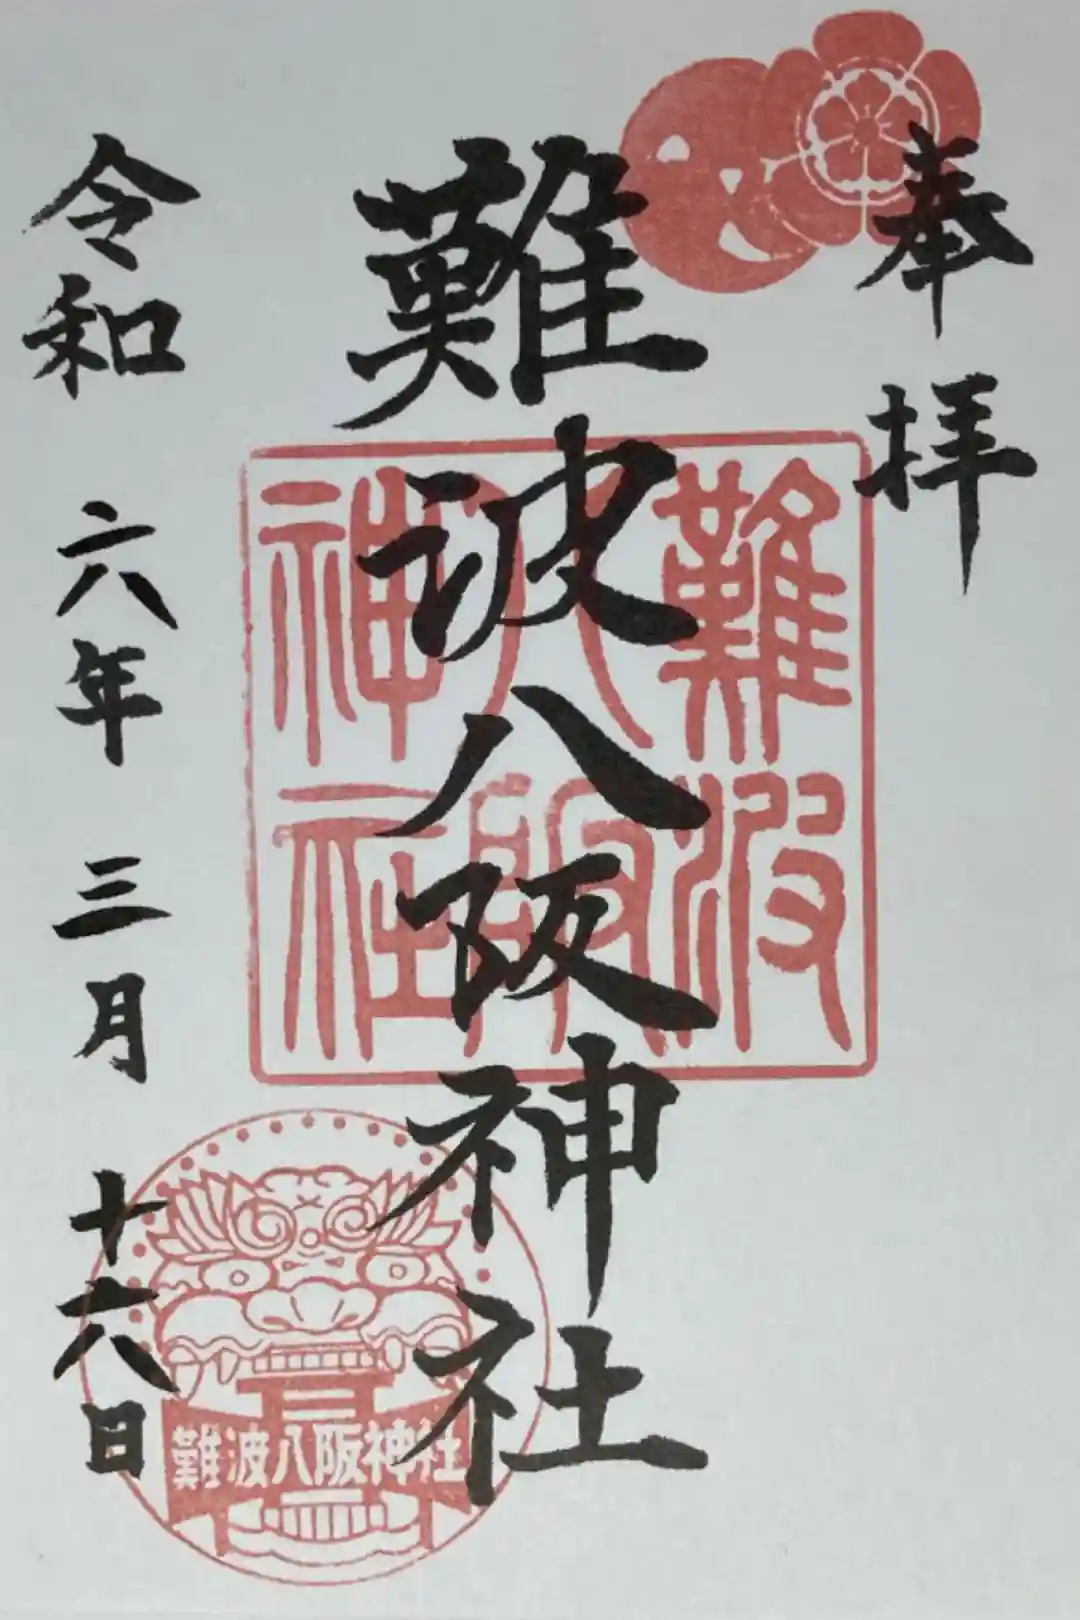 奉拝
難波八阪神社
令和六年三月十六日
難波
八阪
神社
難波八阪神社